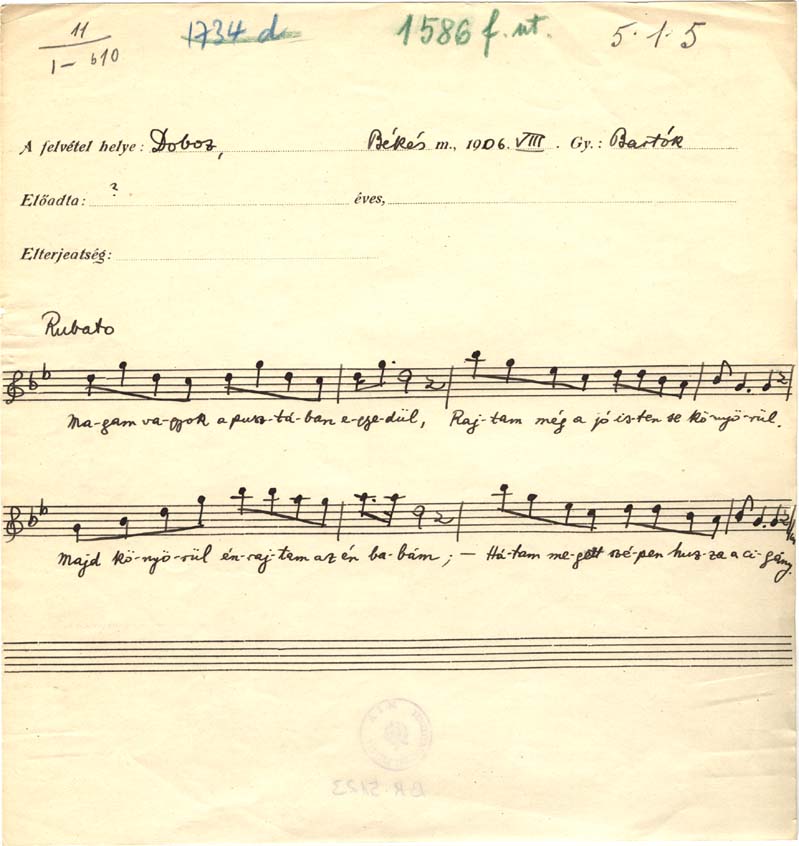 11
I– 610
1734 d
1586 f. nt.
5·1·5
A felvétel helye: Doboz, Békés m., 1906. VIII. Gy.: Bartók
Előadta: ? éves,
Elterjeatség:
Rubato
Ma-gam va-gyok a pusz-tá-ban e-gye-dül, Raj-tam még a jó is-ten se kö-nyö-rül.
Majd kö-nyö-rül én-raj-tam az én ba-bám; – Há-tam me-gett szé-pen husz-za a ci-gány.
BR 5123